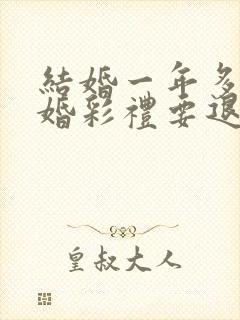 結婚一年多
婚彩禮要退
皇叔大人